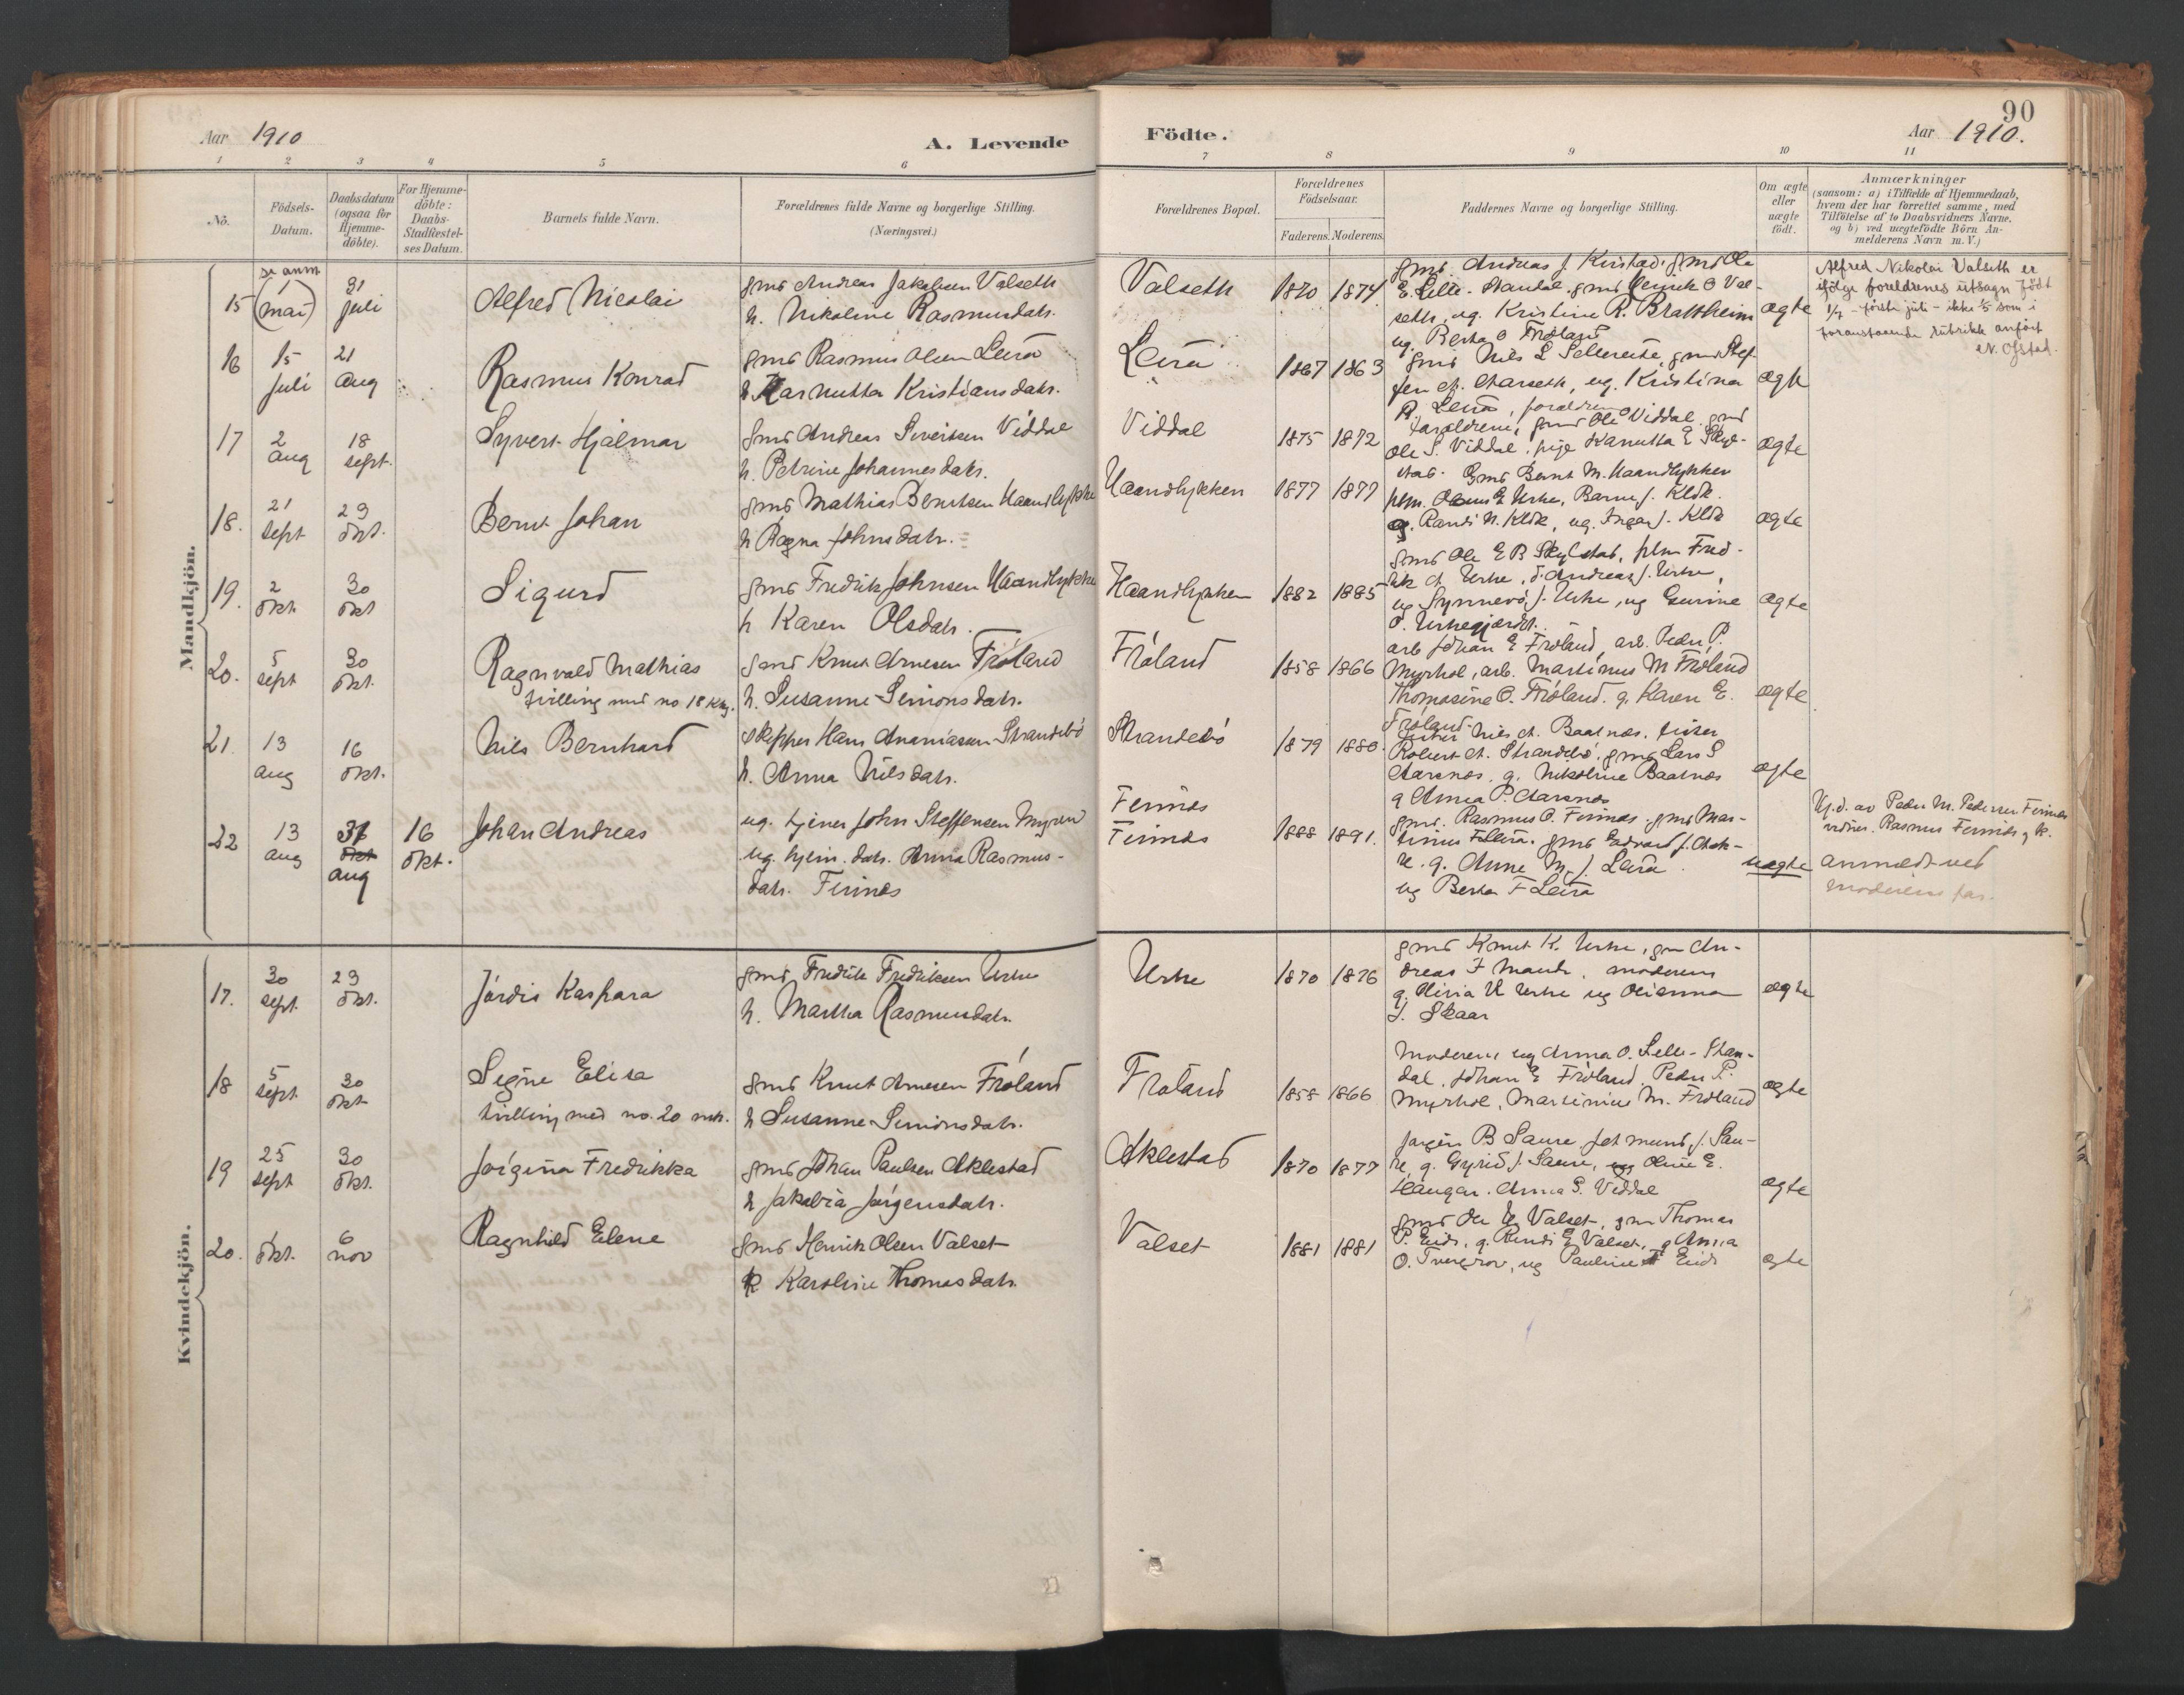 90
Aar 1910
A. Levende
Födte.
Aar 1910.
1 2 3 4 5 6 7 8 9 10 11
No.
Födsels-Datum.
Daabsdatum (ogsaa for Hjemme-döbte).
For Hjemme-döbte: Daabs-Stadfæstel-ses Datum.
Barnets fulde Navn.
Forældrenes fulde Navne og borgerlige Stilling.
(Næringsvei.)
Forældrenes Bopæl.
Forældrenes Födselsaar.
Faderens. Moderens.
Faddernes Navne og borgerlige Stilling.
Om ægte eller uægte födt.
Anmærkninger
(saasom: a) i Tilfælde af Hjemmedaab,
hvem der har forrettet samme, med
Tilföielse af to Daabsvidners Navne,
og b) ved uægtefödte Börn An-
melderens Navn m. V.)
Mandkjön.
se anm
15 (1 mai) 31 juli Alfred Nicolai
gmd Andreas Jakobsen Valseth
h. Nikoline Rasmusdatr.
Valseth 1870 1874
gmd. Andreas J. Kvistad. gmd Ole
E. Lille-Standal. gmd Henrik O Val-
seth, ug. Kristine R. Brattheim
ug. Berta O Fröland
ægte
Alfred Nikolai Valseth er
ifølge foreldrenes utsagn født
1/7 - første juli - ikke 1/5 som i
foranstaaende rubrikk anført
N. Ofstad.
16 15 juli 21 aug Rasmus Konrad
gmd Rasmus Olsen Leira
h Karnutta Kristiansdatr.
Leira 1867 1863
gmd Nils L Sellereite, gmd Stef-
fen A. Aarseth, ug. Kristina
R. Leira, forældrene
ægte
17 2 aug 18 sept. Syvert Hjalmar
gmd Andreas Siveitsen Viddal
h. Petrine Johannesdatr.
Viddal 1875 1872
Forældrene, gmd Ole O Viddal. gmd
Ole S. Viddal, pige Kanutta E Skyl-
stad.
ægte
18. 21 sept 29 okt. Bernt Johan
gmd Mathias Berntsen Haandlykke
h Ragna Johnsdatr.
Haandlykken 1877 1877
Gmd Bernt M. Haandlykken
Urke, Barne J. Klok.
g. Randi N. Klok, ug. Inga J. Klok
ægte
19. 2 okt. 30 okt Sigurd
gmd Fredrik Johnsen Haandlykke
h Karen Olsdatr.
Haandlykken 1882 1885
gmd Ole E B Skylstad, plm Fred-
rik A. Urke, d. Andreas J. Urke,
ug Synnevö J. Urke, ug Gurine
O. Urkegjærdet.
ægte
20. 5 sept 30 okt. Ragnvald Mathias
tvilling med no 18 Kkj.
gmd Knut Arnesen Fröland
h. Susanne Simonsdatr.
Fröland 1858 1866
arb Johan E Fröland, arb. Peder P.
Myrhol, arb. Martinus M Fröland
Thomasine O. Fröland. g. Karen E.
Fröland
ægte
21. 13 aug 16 okt. Nils Bernhard
skipper Hans Ananiasen Strandebö
h. Anna Nilsdatr.
Strandebö 1879 1880.
fisker Nils A. Baatnes, fisker
Robert A. Strandebö. gmd Lars S
Aarsnes, g. Nikoline Baatnes
g Anna P. Aarsnes
ægte
22 13 aug 31 okt aug 16 okt. Johan Andreas
ug. tjener John Steffensen Myren
ug. hjem. datr. Anna Rasmus-
datr. Finnes
Finnes
Finnes
1888 1891.
gmd. Rasmus O. Finnes. gmd Mar-
tinus Leira. gmd Edvard J. Aak-
re. g. Anne M. J. Leira
ug Berta F Leira
uægte
Hj.d. av Peder M. Pedersen Finnes
vidner. Rasmus Finnes g k.
anmeldt ved
moderens far.
Kvindekjön.
17. 30 sept. 29 okt. Jórdis Kaspara
gmd. Fredrik Fredriksen Urke
h. Martha Rasmusdatr.
Urke 1870 1876
gmd Knut K. Urke, gm An-
dreas F Maude. moderen
g. Olivia K Urke ug Olianna
J. Skaar
ægte
18 5 sept. 30 okt Signe Elisa
tvilling med no. 20 mk.
gmd Knut Arnesen Fróland
h Susanne Simonsdatr.
Fröland 1858 1866
Moderen, ug Anna O. Lille-Stan-
dal, Johan E Fröland Peder P.
Myrhol, Martinius M. Fröland
ægte
19 25 sept 30 okt. Jórgina Fredrikka
gmd Johan Paulsen Aklestad
h Jakobia Jörgensdatr.
Aklestad 1870 1877
Jorgen B Saure, J. Sau-
re, g. Gyrid J. Saure, Oline E.
Haugen. Anna S. Viddal
ægte
20. 1 okt. 6 nov Ragnhild Elene
gmd Henrik Olsen Valset
h Karoline Thomasdatr.
Valset 1881 1881
gmd Ole Valset, gm Thomas
P. Eids, g. Randi E Valset, g Anna
O. Tvergrov, ug Pauline Eids
ægte